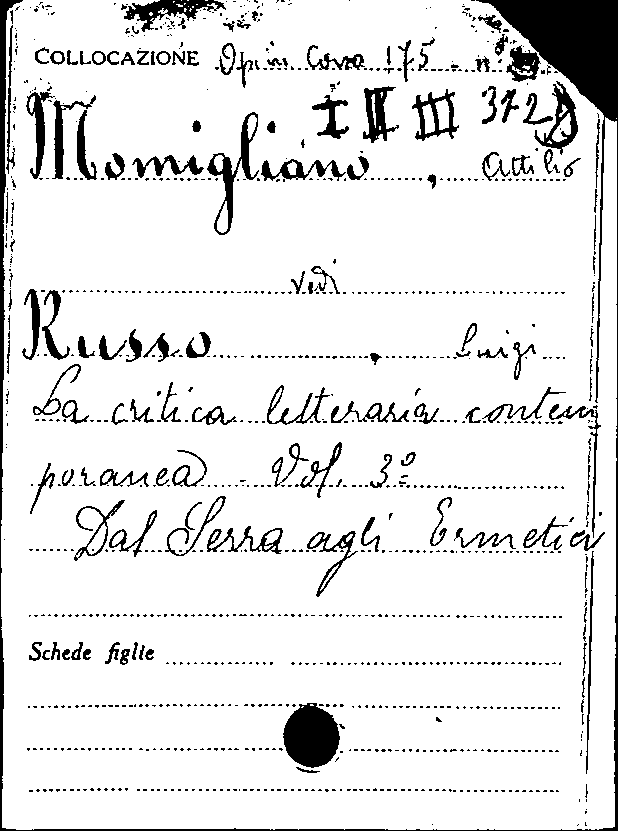 COLLOCAZIONE Op in Corso 175 - n.
I II III 372
Momigliano, Attilio
vedi
Russo, Luigi
La critica letteraria contem
poranea - Vol. 3º
Dal Serra agli Ermetici
Schede figlie